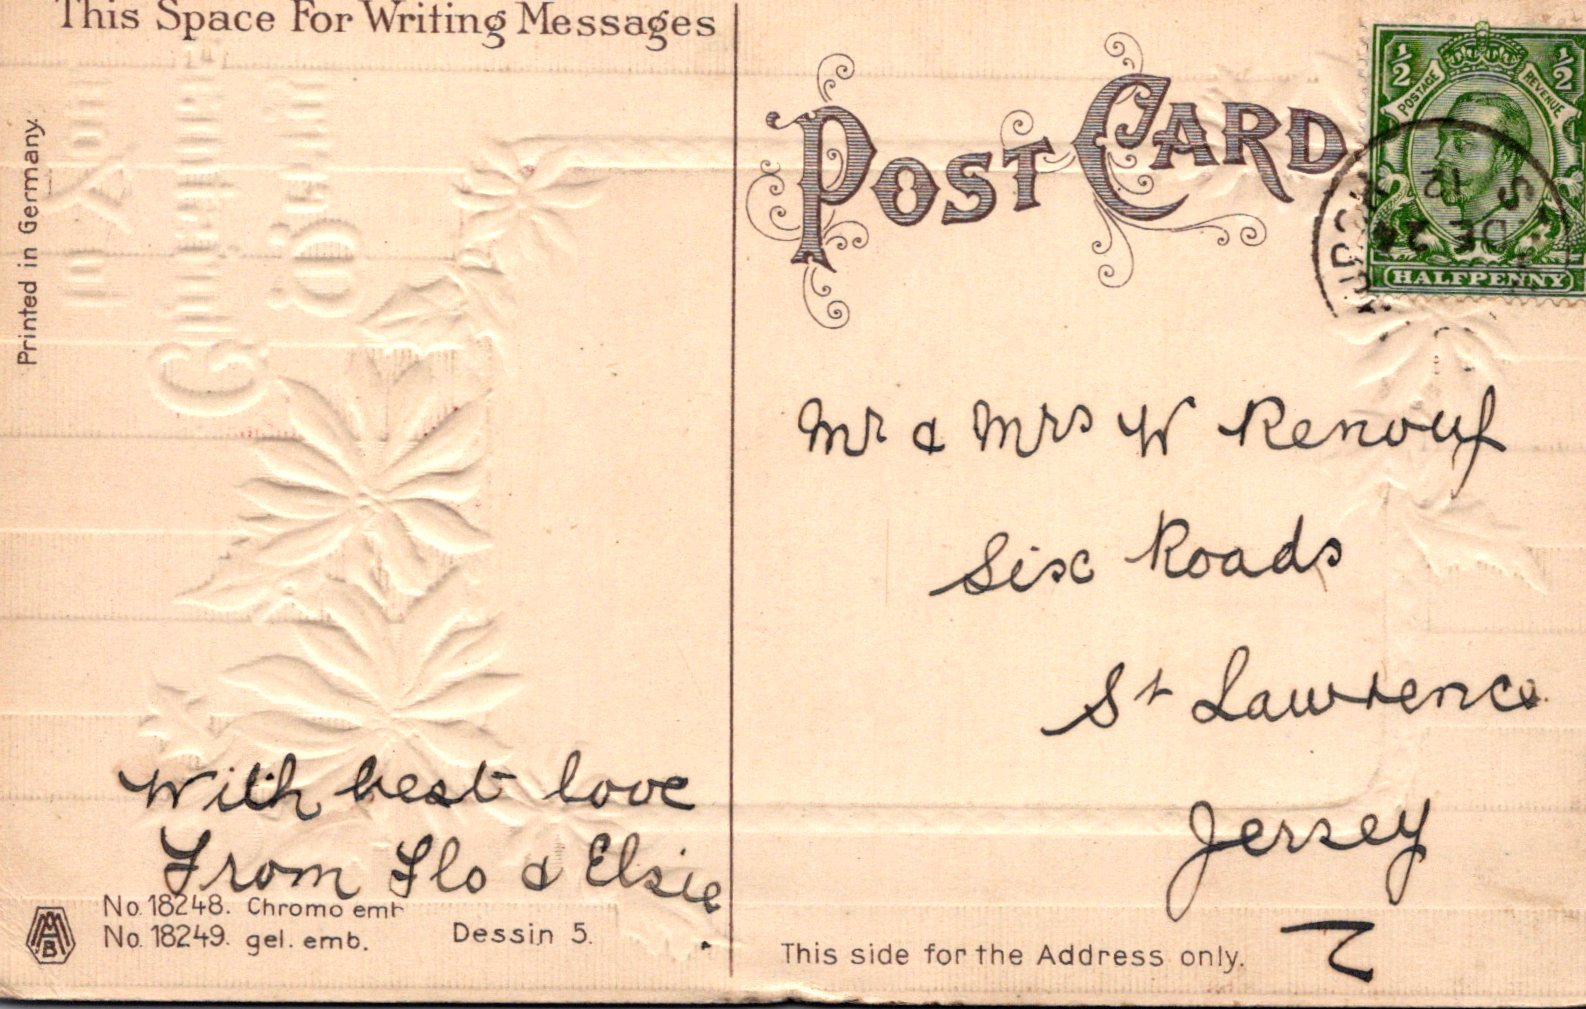 This Space For Writing Messages
Printed in Germany.
POST CARD
½ ½
POSTAGE REVENUE
HALFPENNY
DE 24
12
Mr & Mrs W Renouf
Six Roads
St Lawrence
Jersey
With best love
From Flo & Elsie
No. 18248. Chromo emb
No. 18249. gel. emb.
Dessin 5.
This side for the Address only.